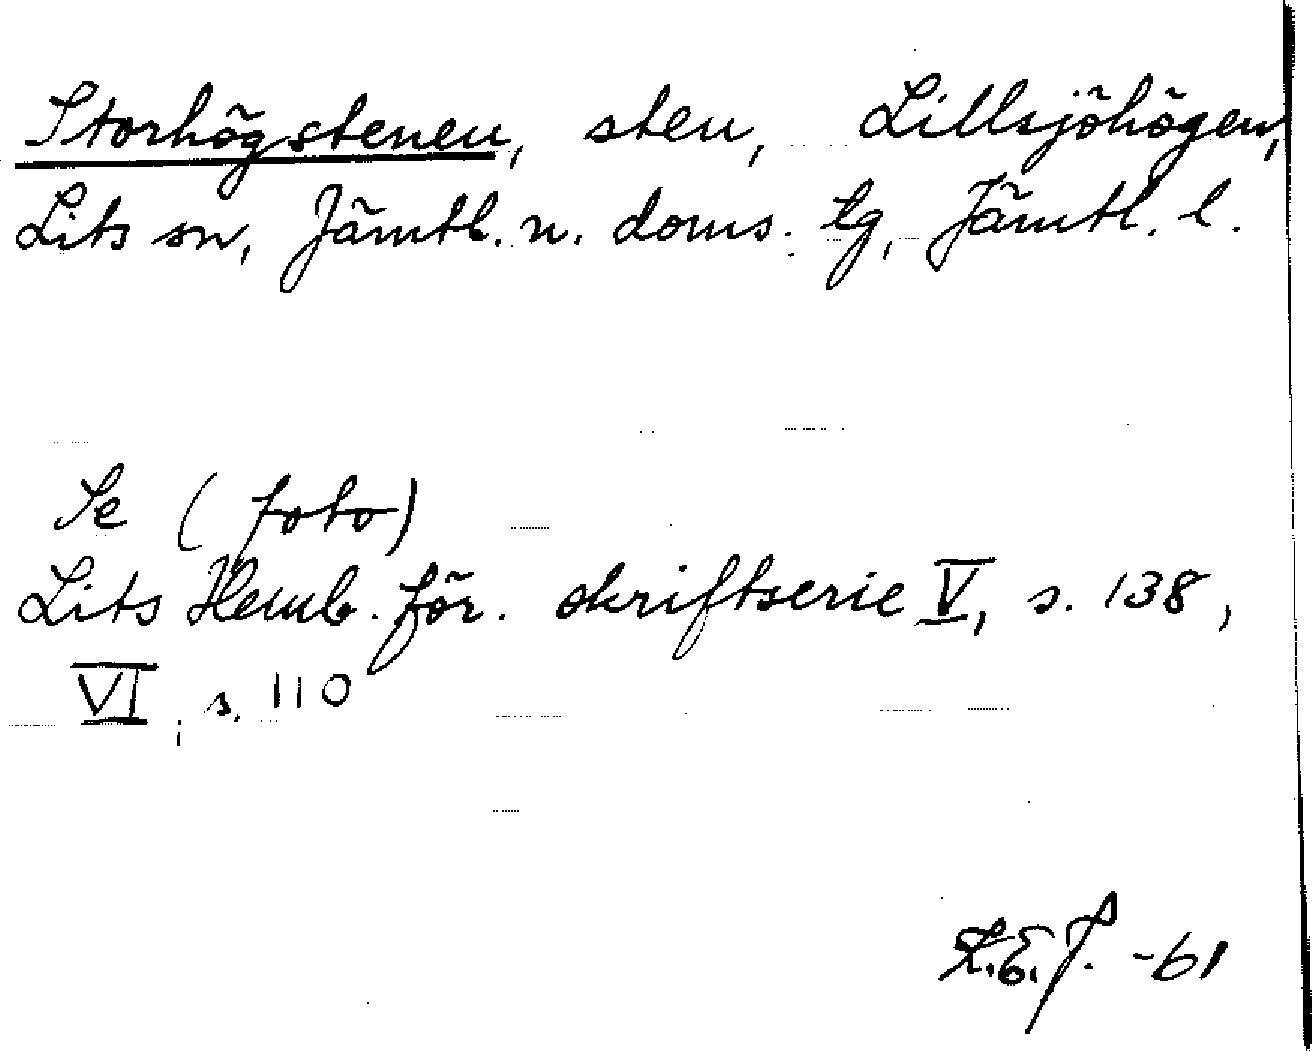 Storhögstenen, sten, Lillsjöhögen,
Lits sn, Jämtl. n. doms. tg, Jämtl. l.
Se (foto)
Lits Hemb. för. skriftserie V, s. 138,
VI, s. 110
-61